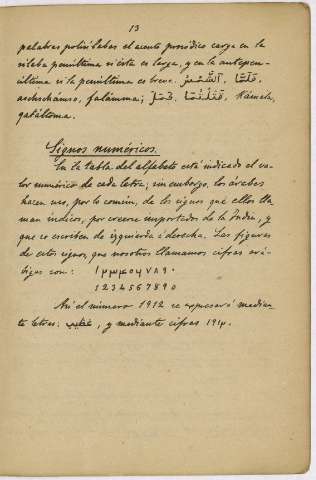 13
palabras polisílabas el acento prosódico carga en la
sílaba penúltima si ésta es larga, y en la antepen-
última si la penúltima es breve.
aschschámso, falámma; Kámala,
qatáltoma.
Signos numéricos.
En la tabla del alfabeto está indicado el va-
lor numérico de cada letra; sin embargo, los árabes
hacen uso, por lo común, de los signos que ellos lla
man índicos, por creerse importados de la India, y
que se escriben de izquierda á derecha. Las figuras
de estos signos, que nosotros llamamos cifras ará-
bigas son:
1 2 3 4 5 6 7 8 9 0
Así el número 1912 se expresará median-
te letras: , y mediante cifras ١٩١٢.